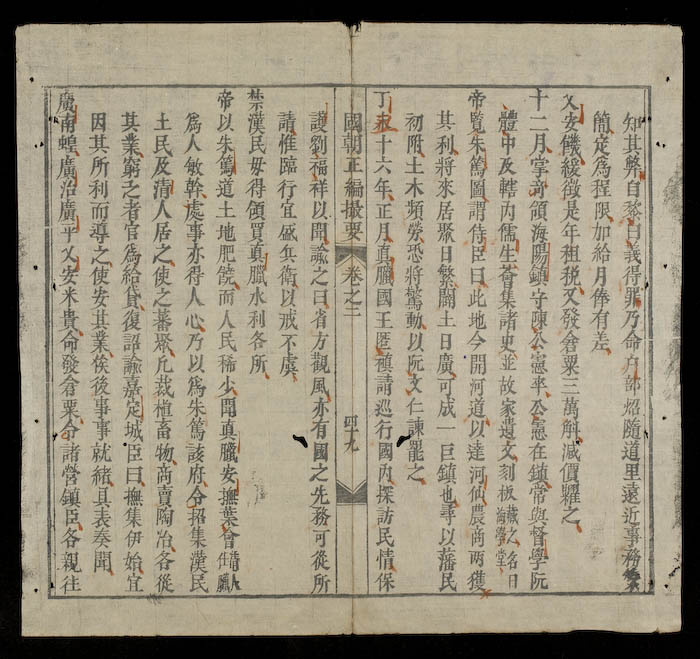 知其弊自黎曰義得罪乃命戶部炤隨道里遠近事務緊
簡定為程限加給月俸有差
乂安饑緩徵是年租稅又發倉粟三萬斛減價糶之
十二月掌竒領海陽鎮守陳公憲卒公憲在鎮常與督學阮
體中及轄內儒生薈集諸史並故家遺文刻板藏之名曰海學堂
帝覽朱篤圖謂侍臣曰此地今開河道以達河仙農商兩獲
其利將來居聚日繁闢土日廣可成一巨鎮也尋以藩民
初附土木頻勞恐將驚動以阮文仁諫罷之
丁丑十六年正月真臘國王匿禛請巡行國內探訪民情保
國朝正編撮要 卷之三 四十九
護劉福祥以聞諭之曰省方觀風亦有國之先務可從所
請惟臨行宜盛兵衛以戒不虞
禁漢民毋得領買真臘水利各所
帝以朱篤道土地肥饒而人民稀少聞真臘安撫葉會清人仕臘
為人敏幹處事亦得人心乃以為朱篤該府令招集漢民
土民及清人居之使之蕃聚凡栽植畜物商賣陶冶各從
其業窮乏者官為給貸復詔諭嘉定城臣曰撫集伊始宜
因其所利而導之使安其業俟後事事就緒具表奏聞
廣南蝗廣治廣平乂安米貴命發倉粟令諸營鎮臣各親往